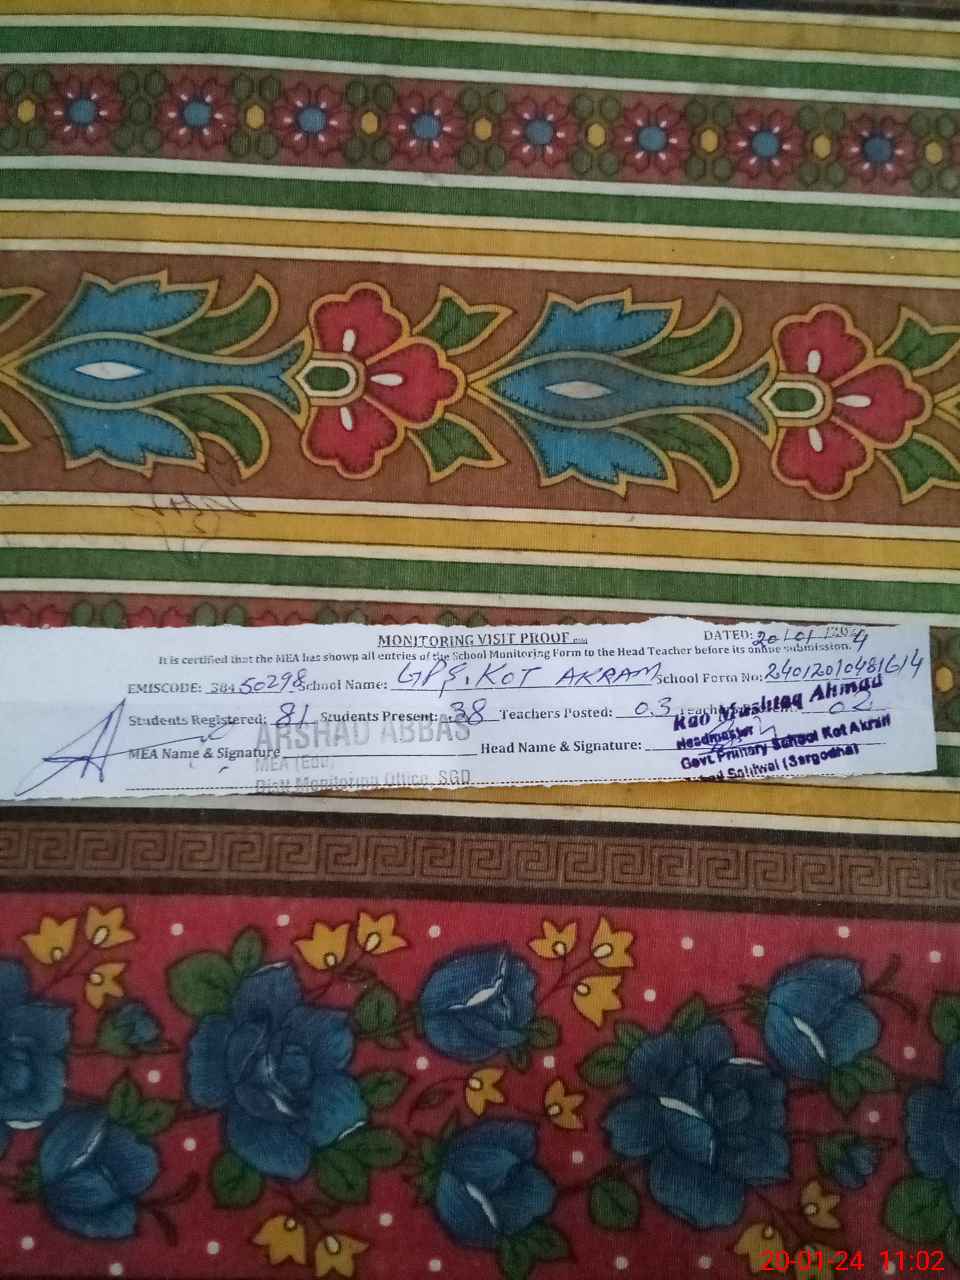 MONITORING VISIT PROOF
DATED: 20/01/2024
It is certified that the MEA has shown all entries of the School Monitoring Form to the Head Teacher before its online submission.
EMISCODE: 38450298 School Name: GPS, KOT AKRAM School Form No: 24012010481614
Students Registered: 81 Students Present: 38 Teachers Posted: 03 02
MEA Name & Signature Head Name & Signature:
ARSHAD ABBAS
MEA (Edu)
Distt Monitoring Office, SGD
Rao Mushtaq Ahmad
Headmaster
Govt. Primary School Kot Akram
(Sargodha)
20-01-24 11:02